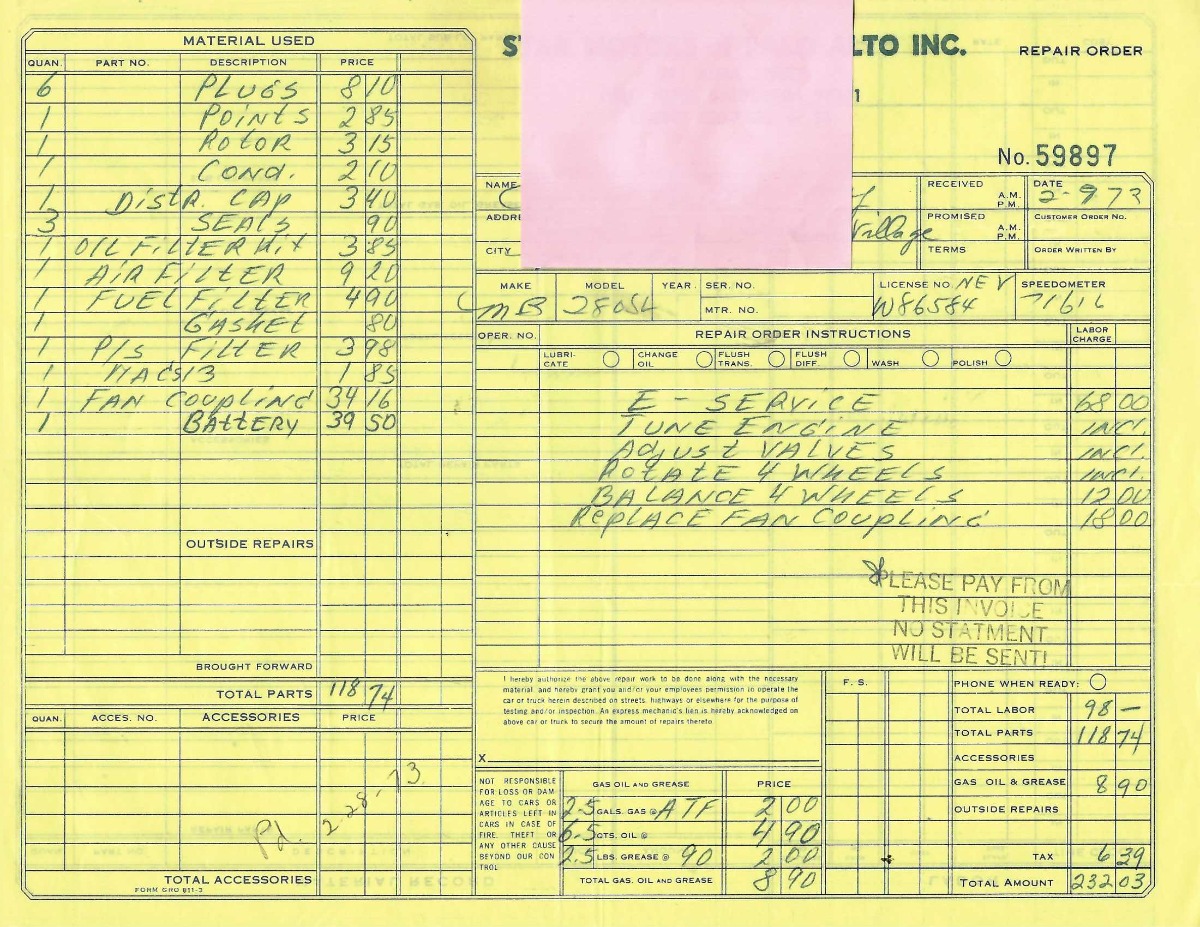 MATERIAL USED
QUAN. PART NO. DESCRIPTION PRICE
6 PLUGS 8 10
1 POINTS 2 85
1 ROTOR 3 15
1 COND. 2 10
1 DISTR. CAP 3 40
3 SEALS 90
1 OIL FILTER KIT 3 85
1 AIR FILTER 9 20
1 FUEL FILTER 4 90
1 GASKET 80
1 P/S FILTER 3 98
1 1 85
1 FAN COUPLING 34 16
1 BATTERY 39 50
OUTSIDE REPAIRS
BROUGHT FORWARD
TOTAL PARTS 118 74
QUAN. ACCES. NO. ACCESSORIES PRICE
Pd. 2-28-73
TOTAL ACCESSORIES
FORM GRO 811-3
LTO INC. REPAIR ORDER
1
No. 59897
NAME RECEIVED A.M. P.M. DATE 2-9 73
ADDRE Village PROMISED A.M. P.M. CUSTOMER ORDER NO.
CITY TERMS ORDER WRITTEN BY
MAKE MB MODEL 280SL YEAR SER. NO. LICENSE NO. NEV W86584 SPEEDOMETER 71616
MTR. NO.
OPER. NO. REPAIR ORDER INSTRUCTIONS LABOR CHARGE
LUBRI-CATE CHANGE OIL FLUSH TRANS. FLUSH DIFF. WASH POLISH
E - SERVICE 68 00
TUNE ENGINE INCL.
ADJUST VALVES INCL.
ROTATE 4 WHEELS INCL.
BALANCE 4 WHEELS 12 00
REPLACE FAN COUPLING 18 00
PLEASE PAY FROM
THIS INVOICE
NO STATMENT
WILL BE SENT!
I hereby authorize the above repair work to be done along with the necessary
material, and hereby grant you and/or your employees permission to operate the
car or truck herein described on streets, highways or elsewhere for the purpose of
testing and/or inspection. An express mechanic's lien is hereby acknowledged on
above car or truck to secure the amount of repairs thereto.
X
NOT RESPONSIBLE
FOR LOSS OR DAM
AGE TO CARS OR
ARTICLES LEFT IN
CARS IN CASE OF
FIRE. THEFT OR
ANY OTHER CAUSE
BEYOND OUR CON
TROL
GAS OIL AND GREASE PRICE
2.5 GALS. GAS @ ATF 2 00
6.5 QTS. OIL @ 4 90
2.5 LBS. GREASE @ 90 2 00
TOTAL GAS. OIL AND GREASE 8 90
F. S.
PHONE WHEN READY:
TOTAL LABOR 98 —
TOTAL PARTS 118 74
ACCESSORIES
GAS OIL & GREASE 8 90
OUTSIDE REPAIRS
TAX 6 39
TOTAL AMOUNT 232 03